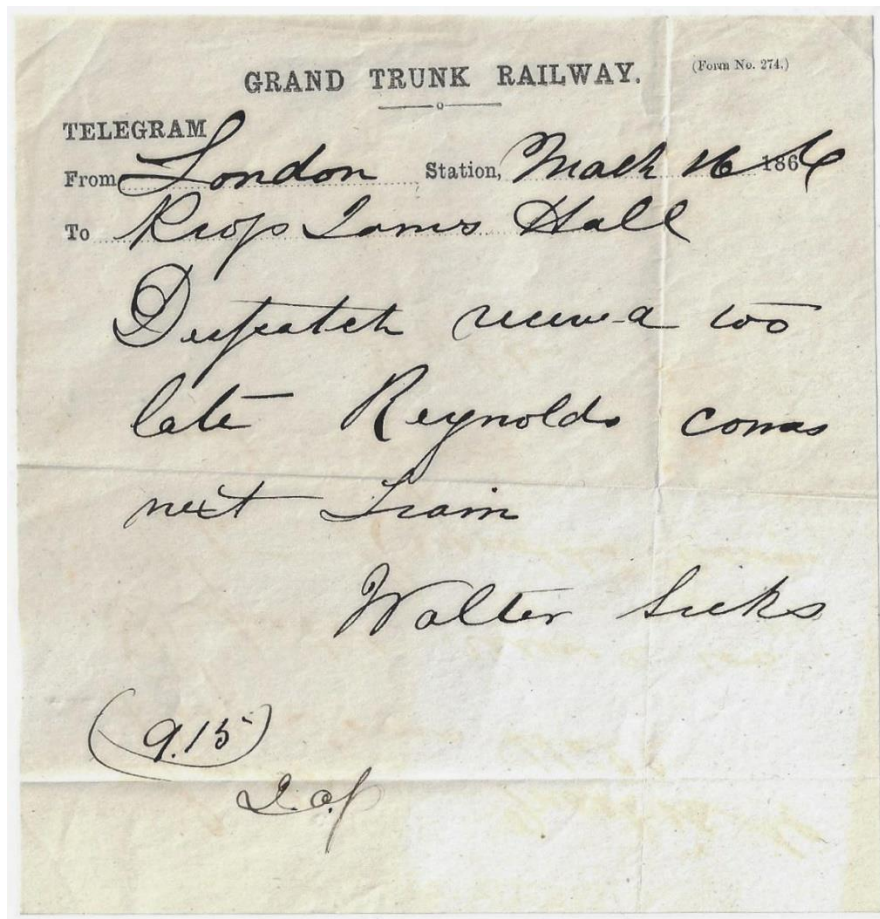 (Form No. 274.)
GRAND TRUNK RAILWAY.
TELEGRAM
From London Station, March 16 1866
To Prof James Hall
Despatch received too
late Reynolds comes
next train
Walter
(9.15)